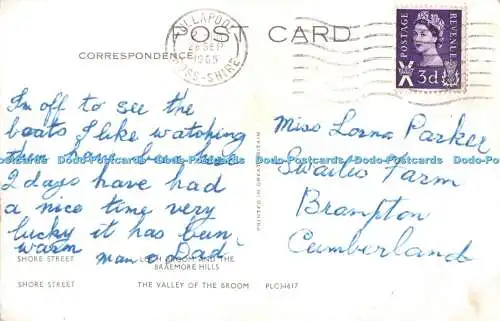 POST CARD
CORRESPONDENCE
ULLAPOOL
SEP
1965
ROSS-SHIRE
POSTAGE
REVENUE
3d
I'm off to see the
boats I like watching
them have been here
2 days have had
a nice time very
lucky it has been
warm Mam & Dad
Miss Lorna Parker
Swaites Farm
Brampton
Cumberland
PRINTED IN GREAT BRITAIN
Dodo-Postcards Dodo-Postcards Dodo-Postcards Dodo-Postcards
SHORE STREET
LOCH BROOM AND THE
BRAEMORE HILLS
SHORE STREET
THE VALLEY OF THE BROOM
PLC34617